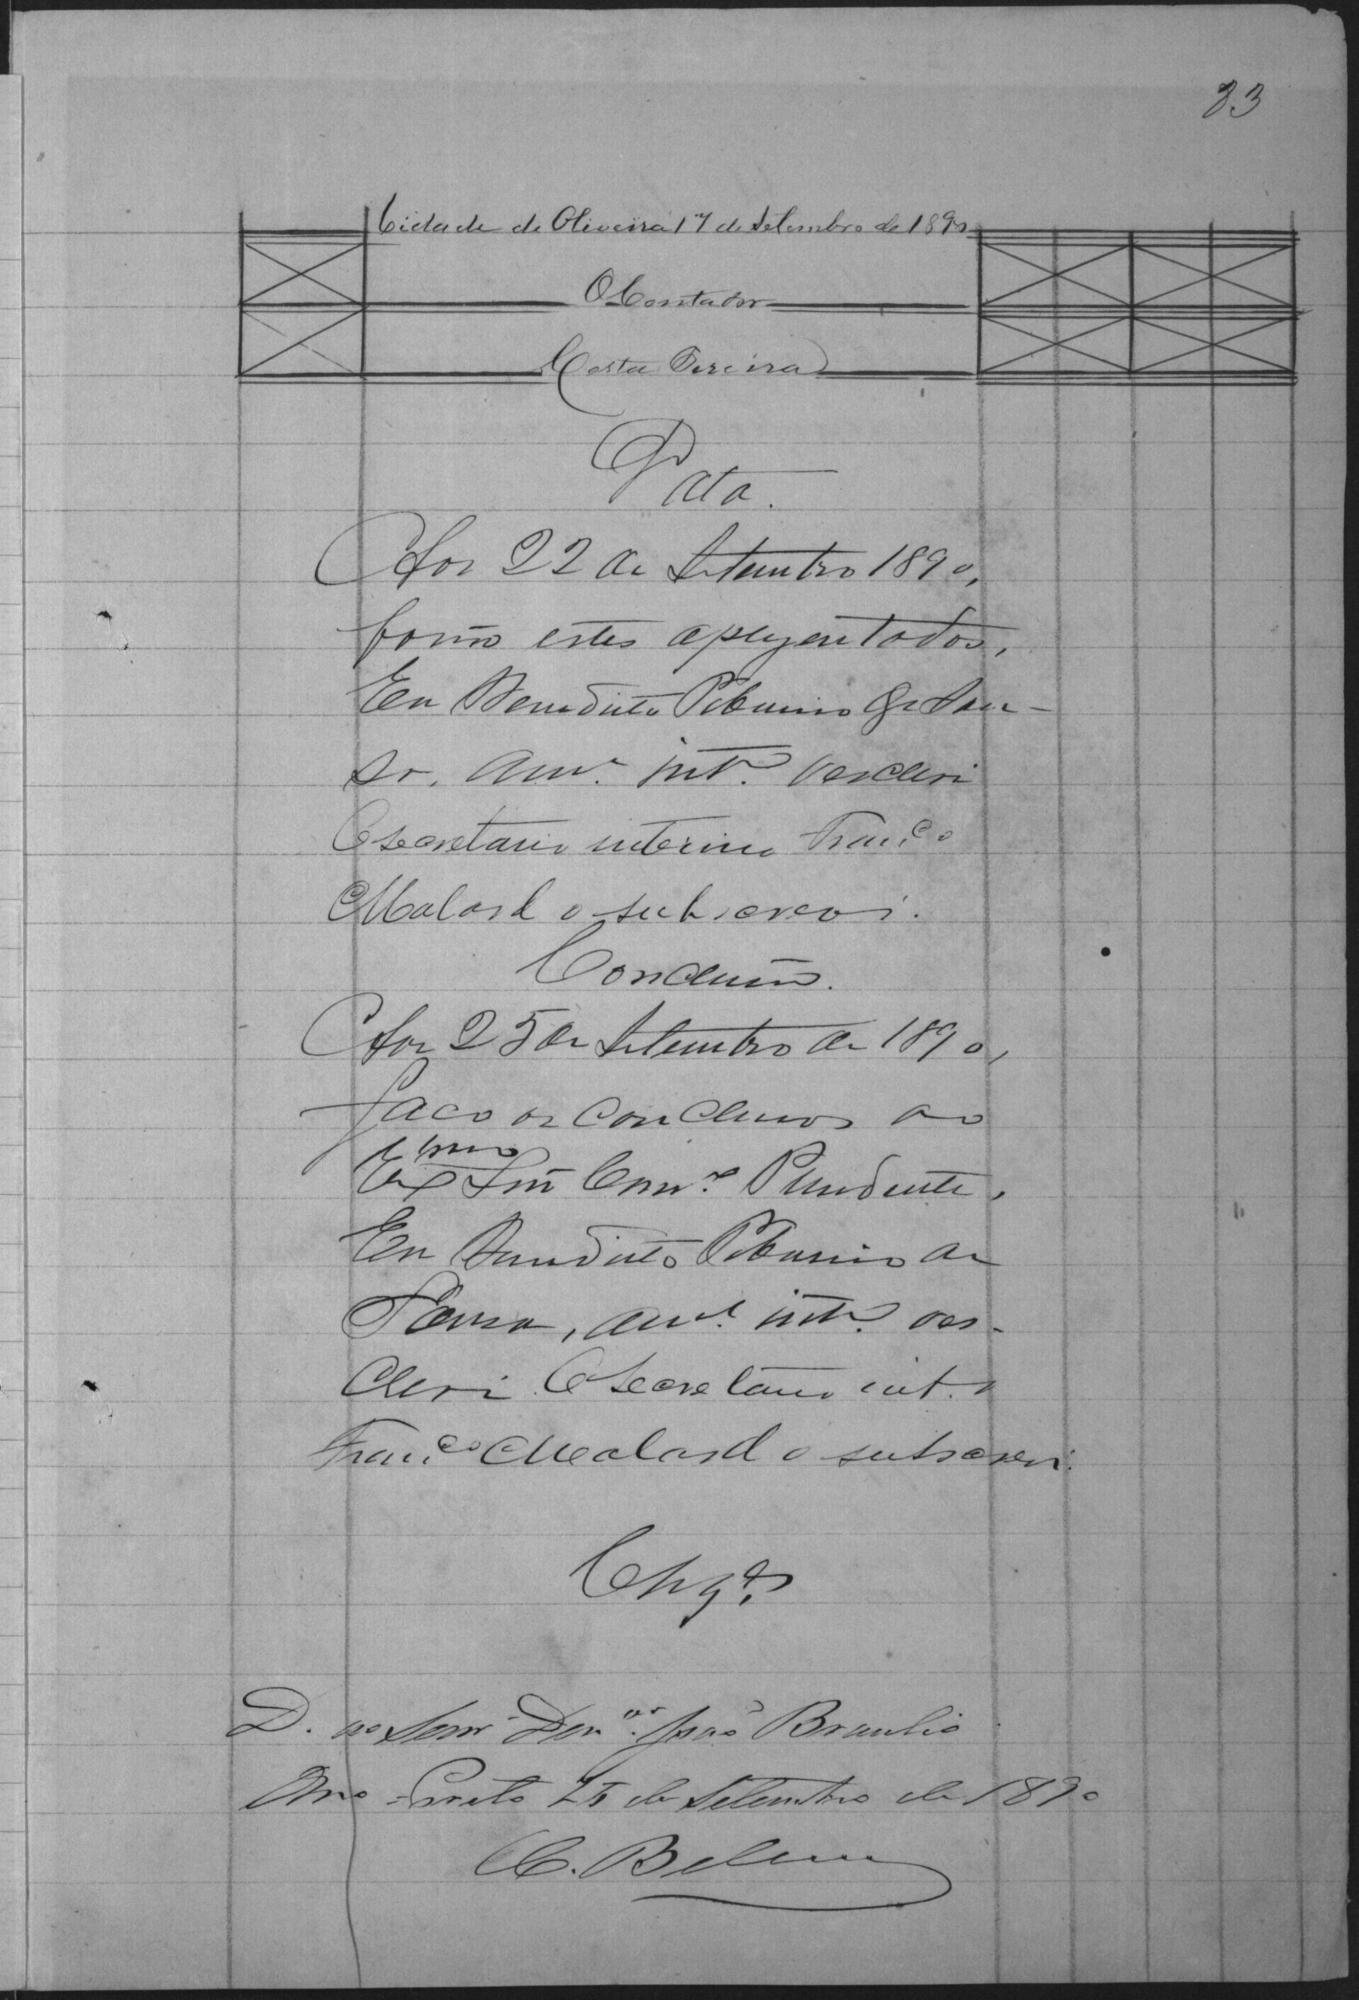 33
Cidade de Oliveira 17 de Setembro de 1890
O Contador
Costa Pereira
Data.
Aos 22 de Setembro 1890,
forão estes aprezentados,
Eu Benedicto Tiburcio de Sou-
sa, am.e int.o o escrevi
O Secretario interino Fran.co
Malard o subscrevi.
Conclusão.
Aos 25 de Setembro de 1890,
faço os conclusos ao
Ex.mo Snr̃ Cons.ro Presidente,
Eu Benedicto Tiburcio de
Sousa, am.e int.o o es-
crevi O Secretario int.o
Fran.co Malard o subscrevi.
Clsos
D. ao Senr Des.or João Braulio
Ouro Preto 25 de Setembro de 1890